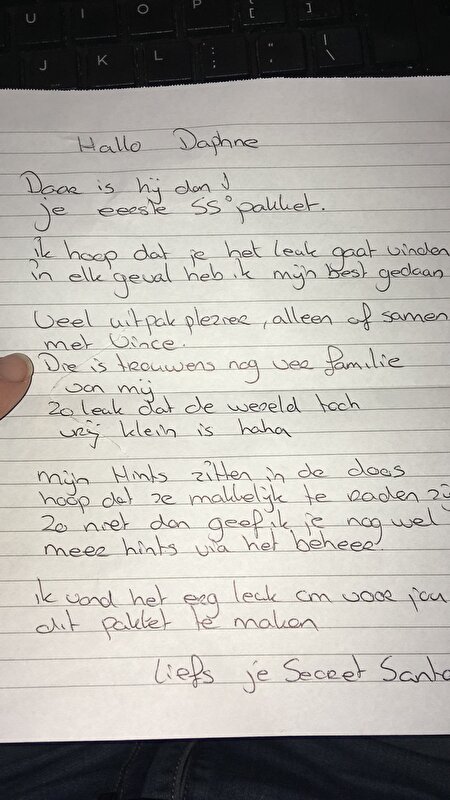 U I O P { [ } ]
J K L : ; " '
| \
Hallo Daphne
Daar is hij dan!
je eerste SS° pakket.
ik hoop dat je het leuk gaat vinden
in elk geval heb ik mijn best gedaan
Veel uitpak plezier, alleen of samen
met Vince.
Die is trouwens nog ver familie
van mij
zo leuk dat de wereld toch
vrij klein is haha
mijn Hints zitten in de doos
hoop dat ze makkelijk te raden zij
zo niet dan geef ik je nog wel
meer hints via het beheer.
ik vond het erg leuk om voor jou
dit pakket te maken
Liefs je Secret Santa